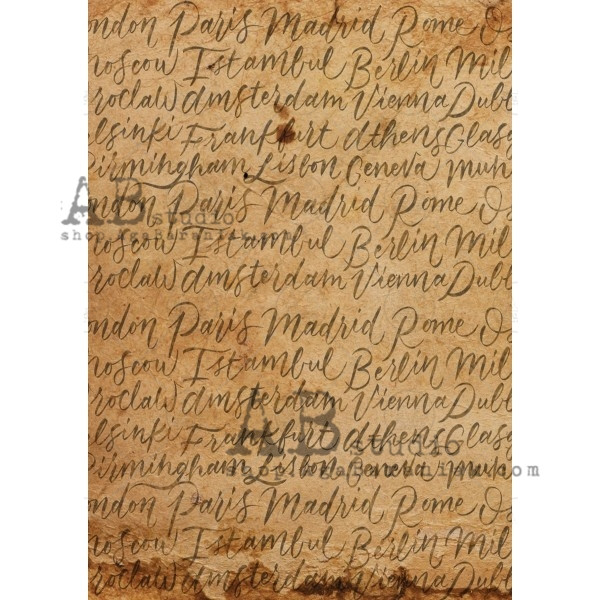 ondon Paris Madrid Rome O
noscow Istambul Berlin Mil
roclaw amsterdam Vienna Dubl
lsinki Frankfurt Athens Glasg
Birmingham Lisbon Geneva mun
AB studio
shop.agabaraniak.com
ondon Paris Madrid Rome O
noscow Istambul Berlin Mil
roclaw amsterdam Vienna Dubl
ondon Paris Madrid Rome O
noscow Istambul Berlin Mil
roclaw amsterdam Vienna Dubl
lsinki Frankfurt Athens Glasg
AB studio
Birmingham Lisbon Geneva mun
shop.agabaraniak.com
ondon Paris Madrid Rome O
noscow Istambul Berlin Mil
roclaw amsterdam Vienna Dubl